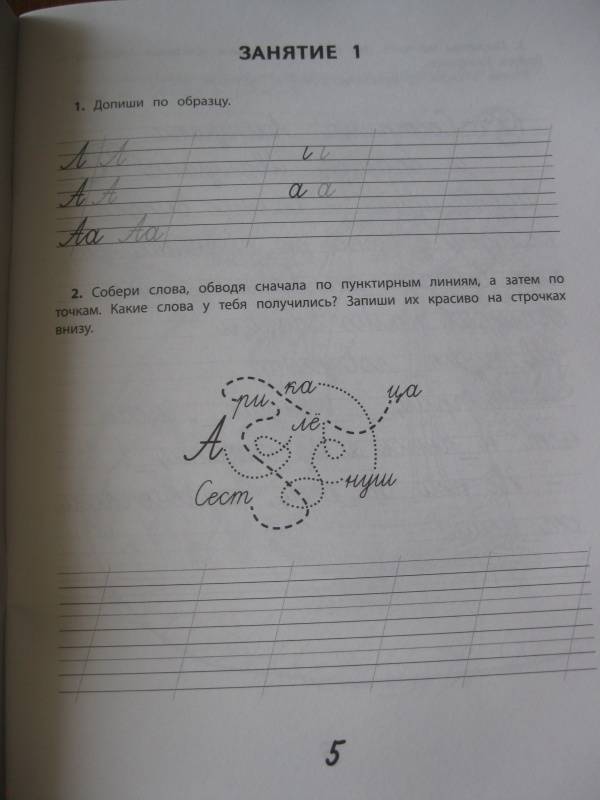 ЗАНЯТИЕ 1
1. Допиши по образцу.
Л Л ι ι
А А а а
Аа Аа
2. Собери слова, обводя сначала по пунктирным линиям, а затем по
точкам. Какие слова у тебя получились? Запиши их красиво на строчках
внизу.
ри ка ца
А лё
Сест нуш
5